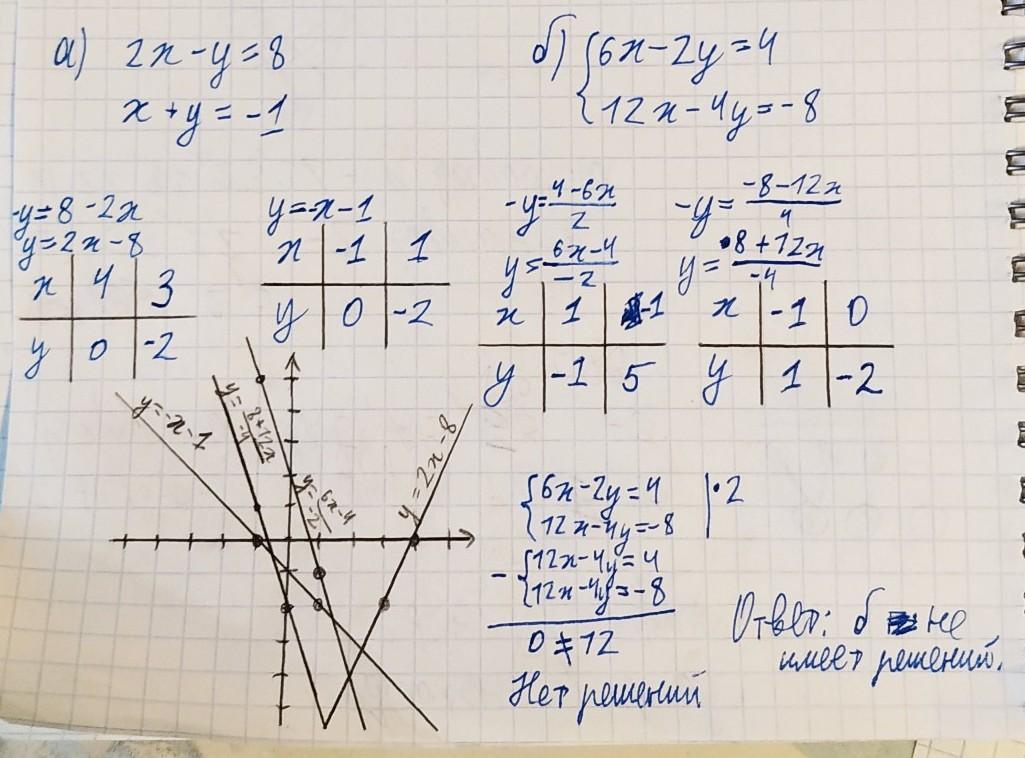 а) 2x - y = 8
x + y = -1
б) {6x - 2y = 4
{12x - 4y = -8
-y = 8 - 2x
y = 2x - 8
x | 4 | 3
y | 0 | -2
y = -x - 1
x | -1 | 1
y | 0 | -2
-y = (4 - 6x)/2
y = (6x - 4)/-2
x | 1 | -1
y | -1 | 5
-y = (-8 - 12x)/4
y = (8 + 12x)/-4
x | -1 | 0
y | 1 | -2
y = -x - 1
y = (8 + 12x)/-4
y = (6x - 4)/-2
y = 2x - 8
{6x - 2y = 4 | · 2
{12x - 4y = -8
- {12x - 4y = 4
{12x - 4y = -8
0 ≠ 12
Нет решений
Ответ: б не
имеет решений.